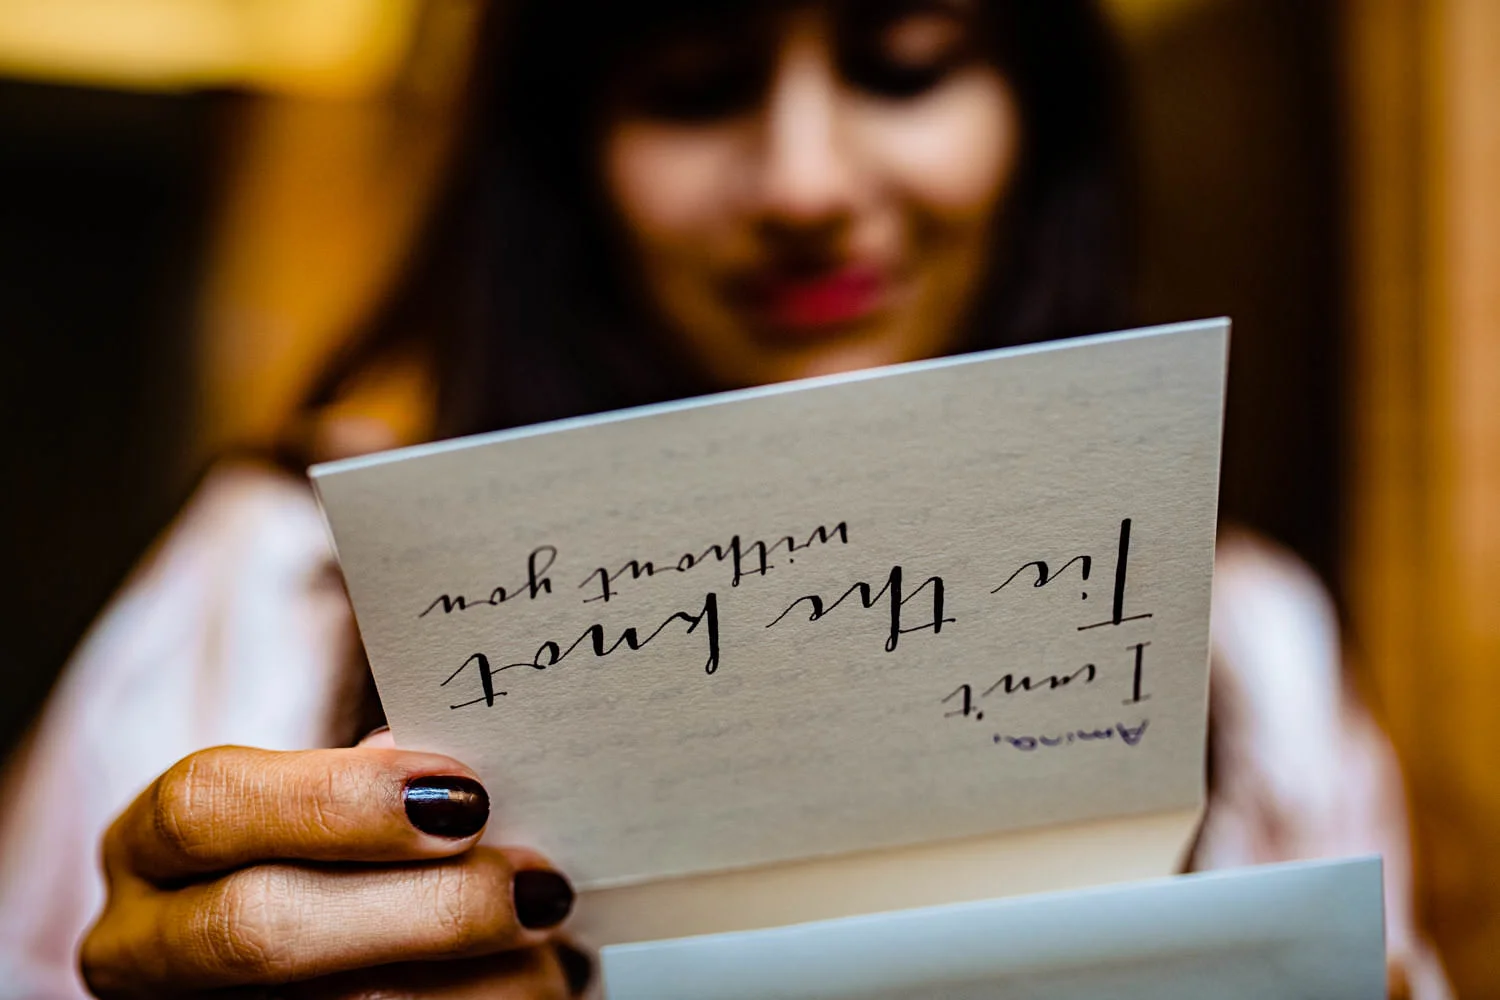 Amina,
I can't
Tie the knot
without you